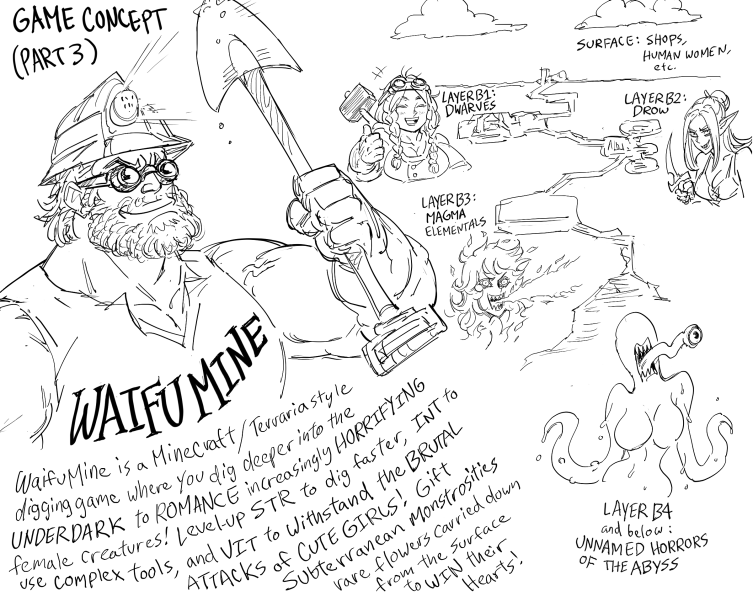 GAME CONCEPT
(PART 3)
SURFACE: SHOPS,
HUMAN WOMEN,
etc.
LAYER B1:
DWARVES
LAYER B2:
DROW
LAYER B3:
MAGMA
ELEMENTALS
WAIFU MINE
WaifuMine is a MineCraft/Terraria style
digging game where you dig deeper into the
UNDERDARK to ROMANCE increasingly HORRIFYING
female creatures! Level-up STR to dig faster, INT to
use complex tools, and VIT to withstand the BRUTAL
ATTACKS of CUTE GIRLS! Gift
Subterranean Monstrosities
rare flowers carried down
from the surface
to WIN their
Hearts!
LAYER B4
and below:
UNNAMED HORRORS
OF THE ABYSS